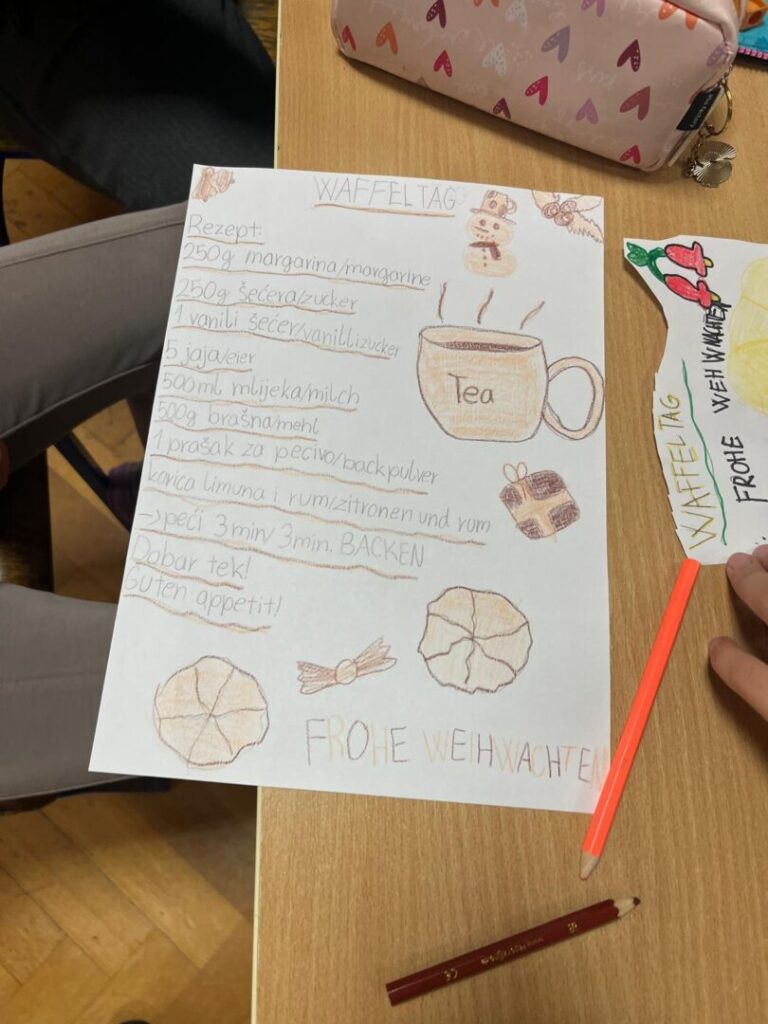 WAFFELTAG
Rezept:
250g margarina/margarine
250g šećera/zucker
1 vanili šećer/vanillizucker
5 jaja/eier
500ml mlijeka/milch
500g brašna/mehl
1 prašak za pecivo/backpulver
korica limuna i rum/zitronen und rum
→peći 3min/3min. BACKEN
Dobar tek!
Guten appetit!
Tea
FROHE WEIHWACHTEN
WAFFELTAG
FROHE WEHWACHTEN